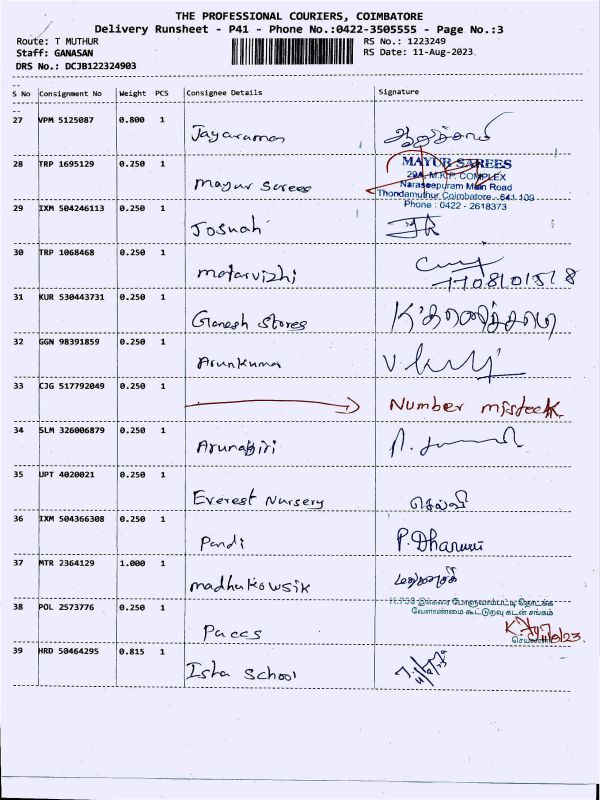 THE PROFESSIONAL COURIERS, COIMBATORE
Delivery Runsheet - P41 - Phone No.:0422-3505555 - Page No.:3
Route: T MUTHUR RS No.: 1223249
Staff: GANASAN RS Date: 11-Aug-2023
DRS No.: DCJB122324903
S No Consignment No Weight PCS Consignee Details Signature
27 VPM 5125087 0.800 1 Jayaraman
28 TRP 1695129 0.250 1 Mayur Sarees
MAYUR SAREES
29A, M.K.P. COMPLEX
Naraseepuram Main Road
Thondamuthur Coimbatore - 641 109
Phone : 0422 - 2618373
29 IXM 504246113 0.250 1 Josuah
30 TRP 1068468 0.250 1 malarvizhi
31 KUR 530443731 0.250 1 Ganesh Stores
32 GGN 98391859 0.250 1 Arunkuma
33 CJG 517792049 0.250 1 Number misteck
34 SLM 326006879 0.250 1 Arunagiri
35 UPT 4020021 0.250 1 Everest Nursery செல்வி
36 IXM 504366308 0.250 1 Pandi P. Dharuni
37 MTR 2364129 1.000 1 madhukowsik
38 POL 2573776 0.250 1 Paccs
போளுவாம்பட்டி தொடக்க
வேளாண்மை கூட்டுறவு கடன் சங்கம்
39 HRD 50464295 0.815 1 Isha School